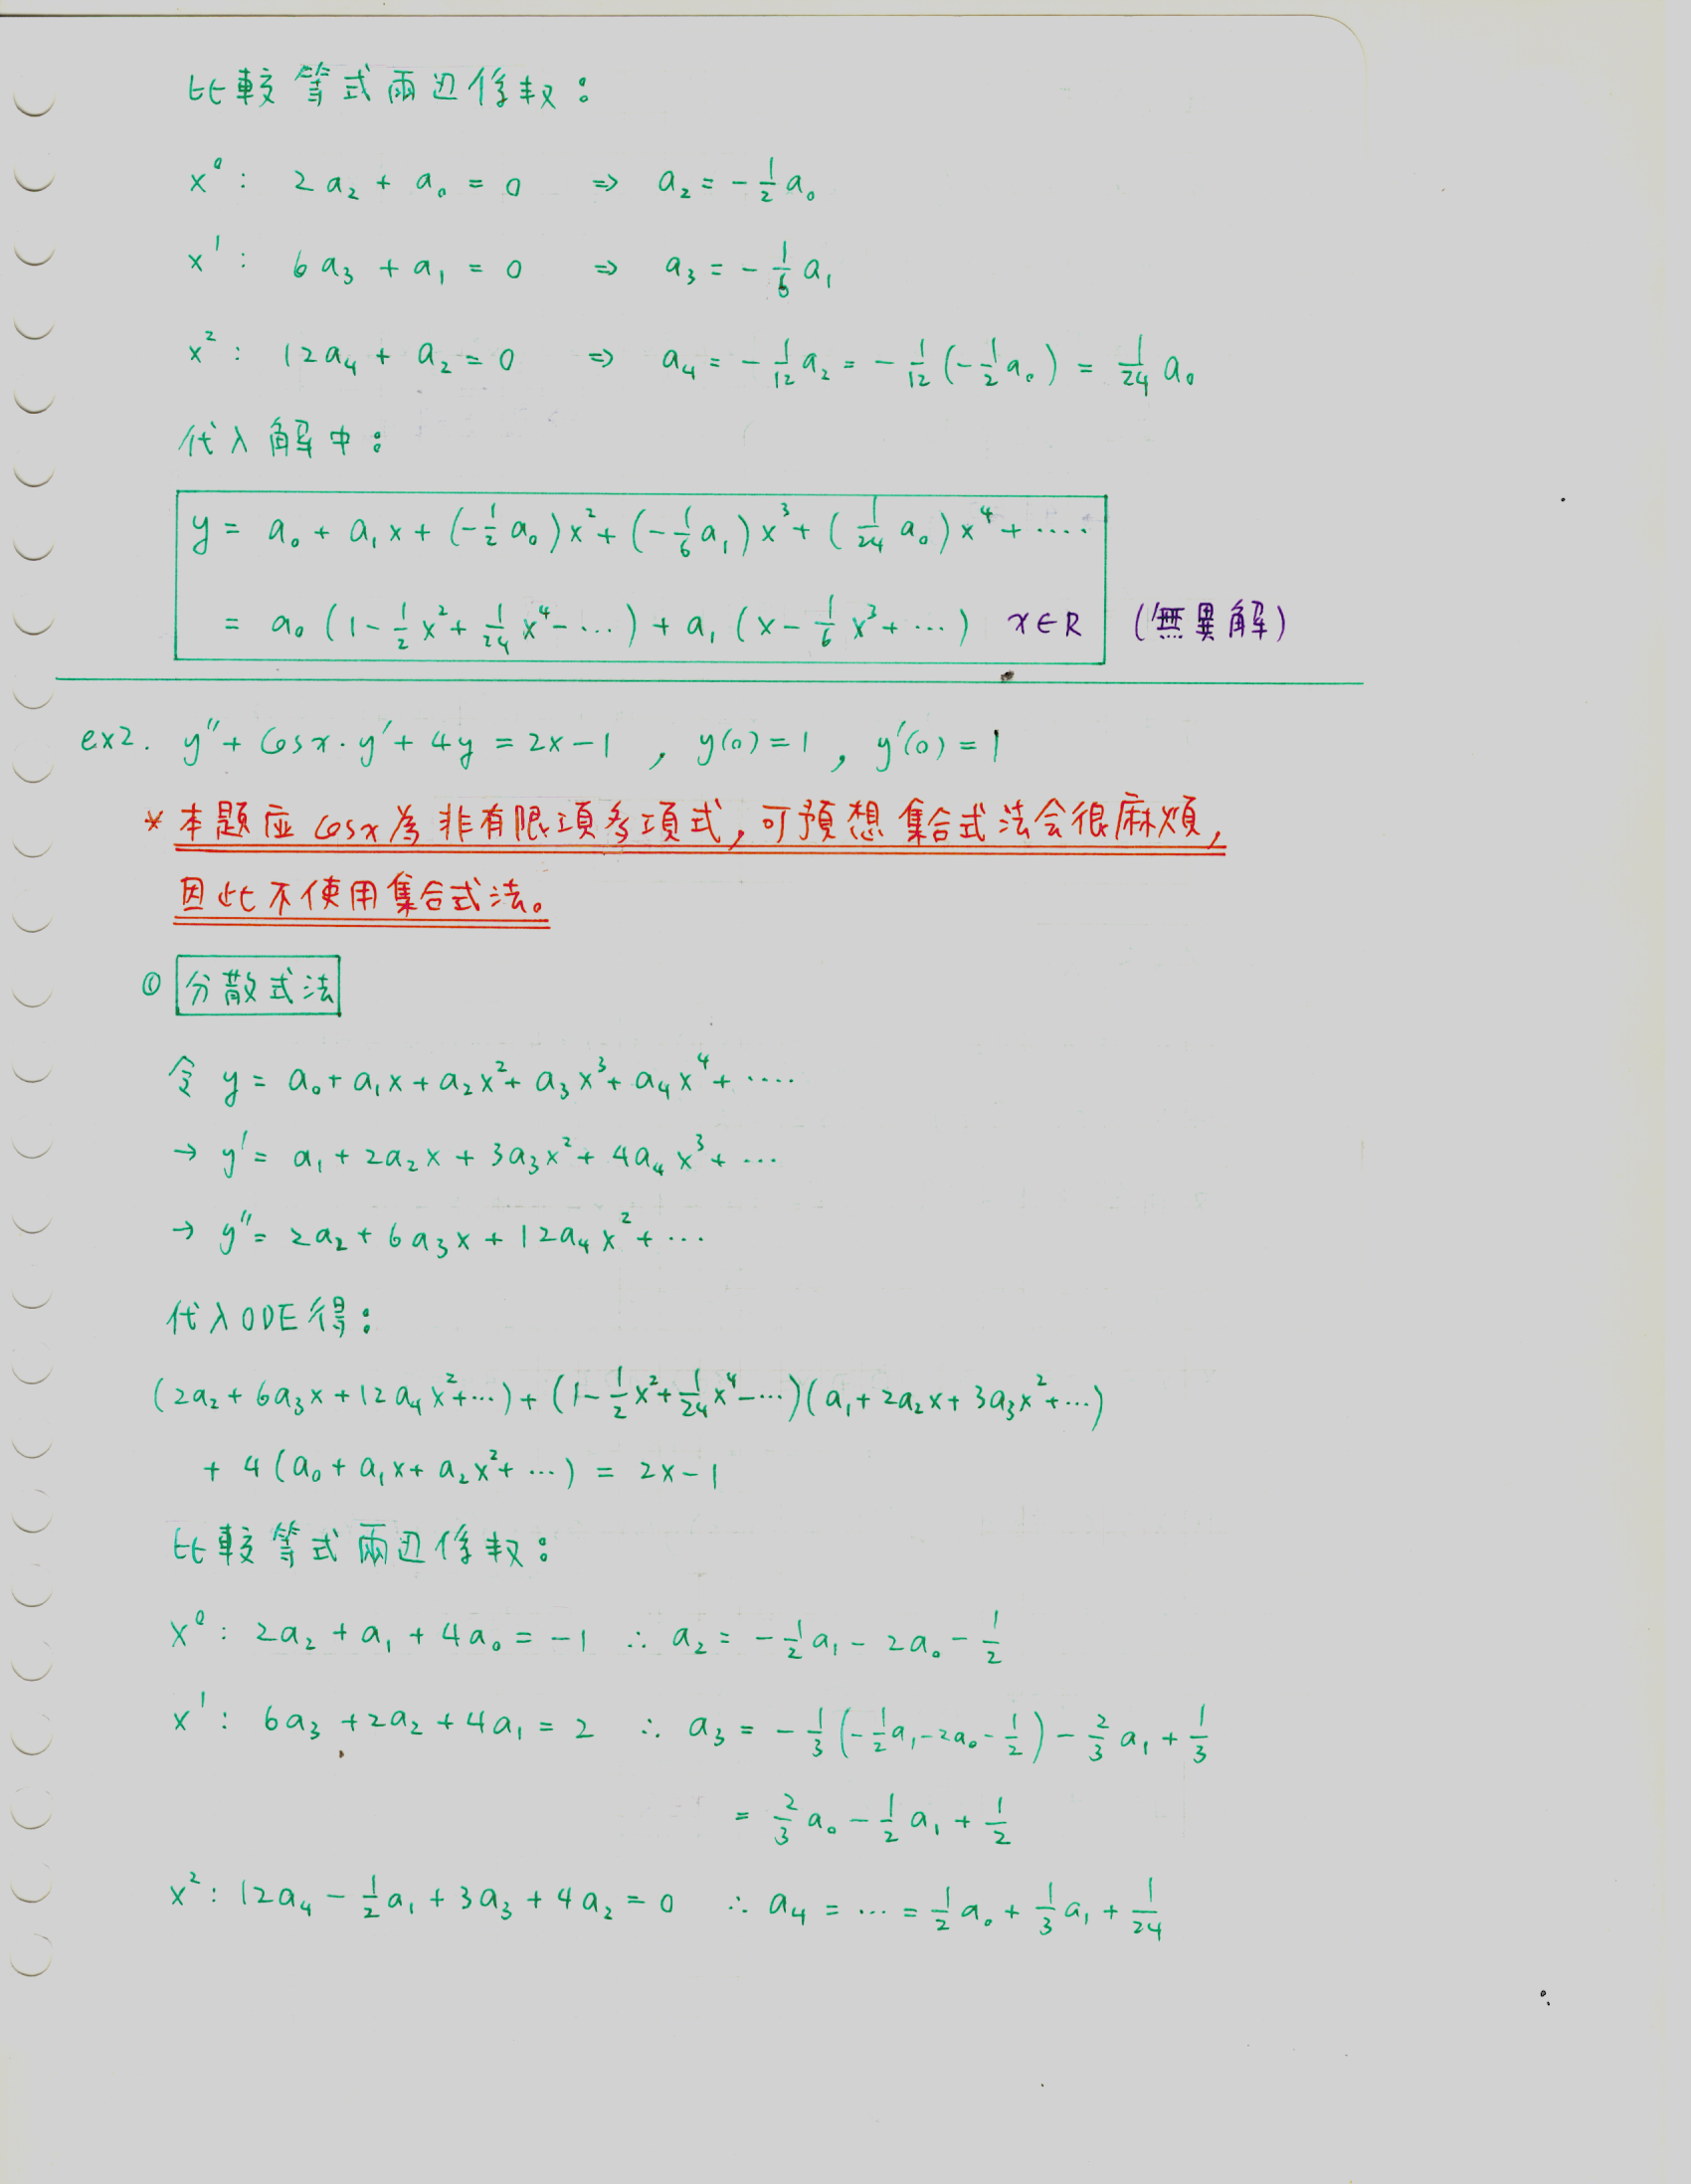 比較等式兩边係数：
x⁰： 2a₂ + a₀ = 0 ⇒ a₂ = -1/2 a₀
x¹： 6a₃ + a₁ = 0 ⇒ a₃ = -1/6 a₁
x²： 12a₄ + a₂ = 0 ⇒ a₄ = -1/12 a₂ = -1/12 (-1/2 a₀) = 1/24 a₀
代入解中：
y = a₀ + a₁x + (-1/2 a₀)x² + (-1/6 a₁)x³ + (1/24 a₀)x⁴ + ....
= a₀ (1 - 1/2 x² + 1/24 x⁴ - ...) + a₁ (x - 1/6 x³ + ...) x∈R (無異解)
ex2. y'' + cosx·y' + 4y = 2x-1 , y(0)=1 , y'(0)=1
* 本題应 cosx 為非有限項多項式, 可預想集合式法会很麻煩,
因此不使用集合式法。
① 分散式法
令 y = a₀ + a₁x + a₂x² + a₃x³ + a₄x⁴ + ....
→ y' = a₁ + 2a₂x + 3a₃x² + 4a₄x³ + ...
→ y'' = 2a₂ + 6a₃x + 12a₄x² + ...
代入ODE得：
(2a₂ + 6a₃x + 12a₄x² + ...) + (1 - 1/2 x² + 1/24 x⁴ - ...)(a₁ + 2a₂x + 3a₃x² + ...)
+ 4 (a₀ + a₁x + a₂x² + ...) = 2x-1
比較等式兩边係数：
x⁰： 2a₂ + a₁ + 4a₀ = -1 ∴ a₂ = -1/2 a₁ - 2a₀ - 1/2
x¹： 6a₃ + 2a₂ + 4a₁ = 2 ∴ a₃ = -1/3 (-1/2 a₁ - 2a₀ - 1/2) - 2/3 a₁ + 1/3
= 2/3 a₀ - 1/2 a₁ + 1/2
x²： 12a₄ - 1/2 a₁ + 3a₃ + 4a₂ = 0 ∴ a₄ = ... = 1/2 a₀ + 1/3 a₁ + 1/24